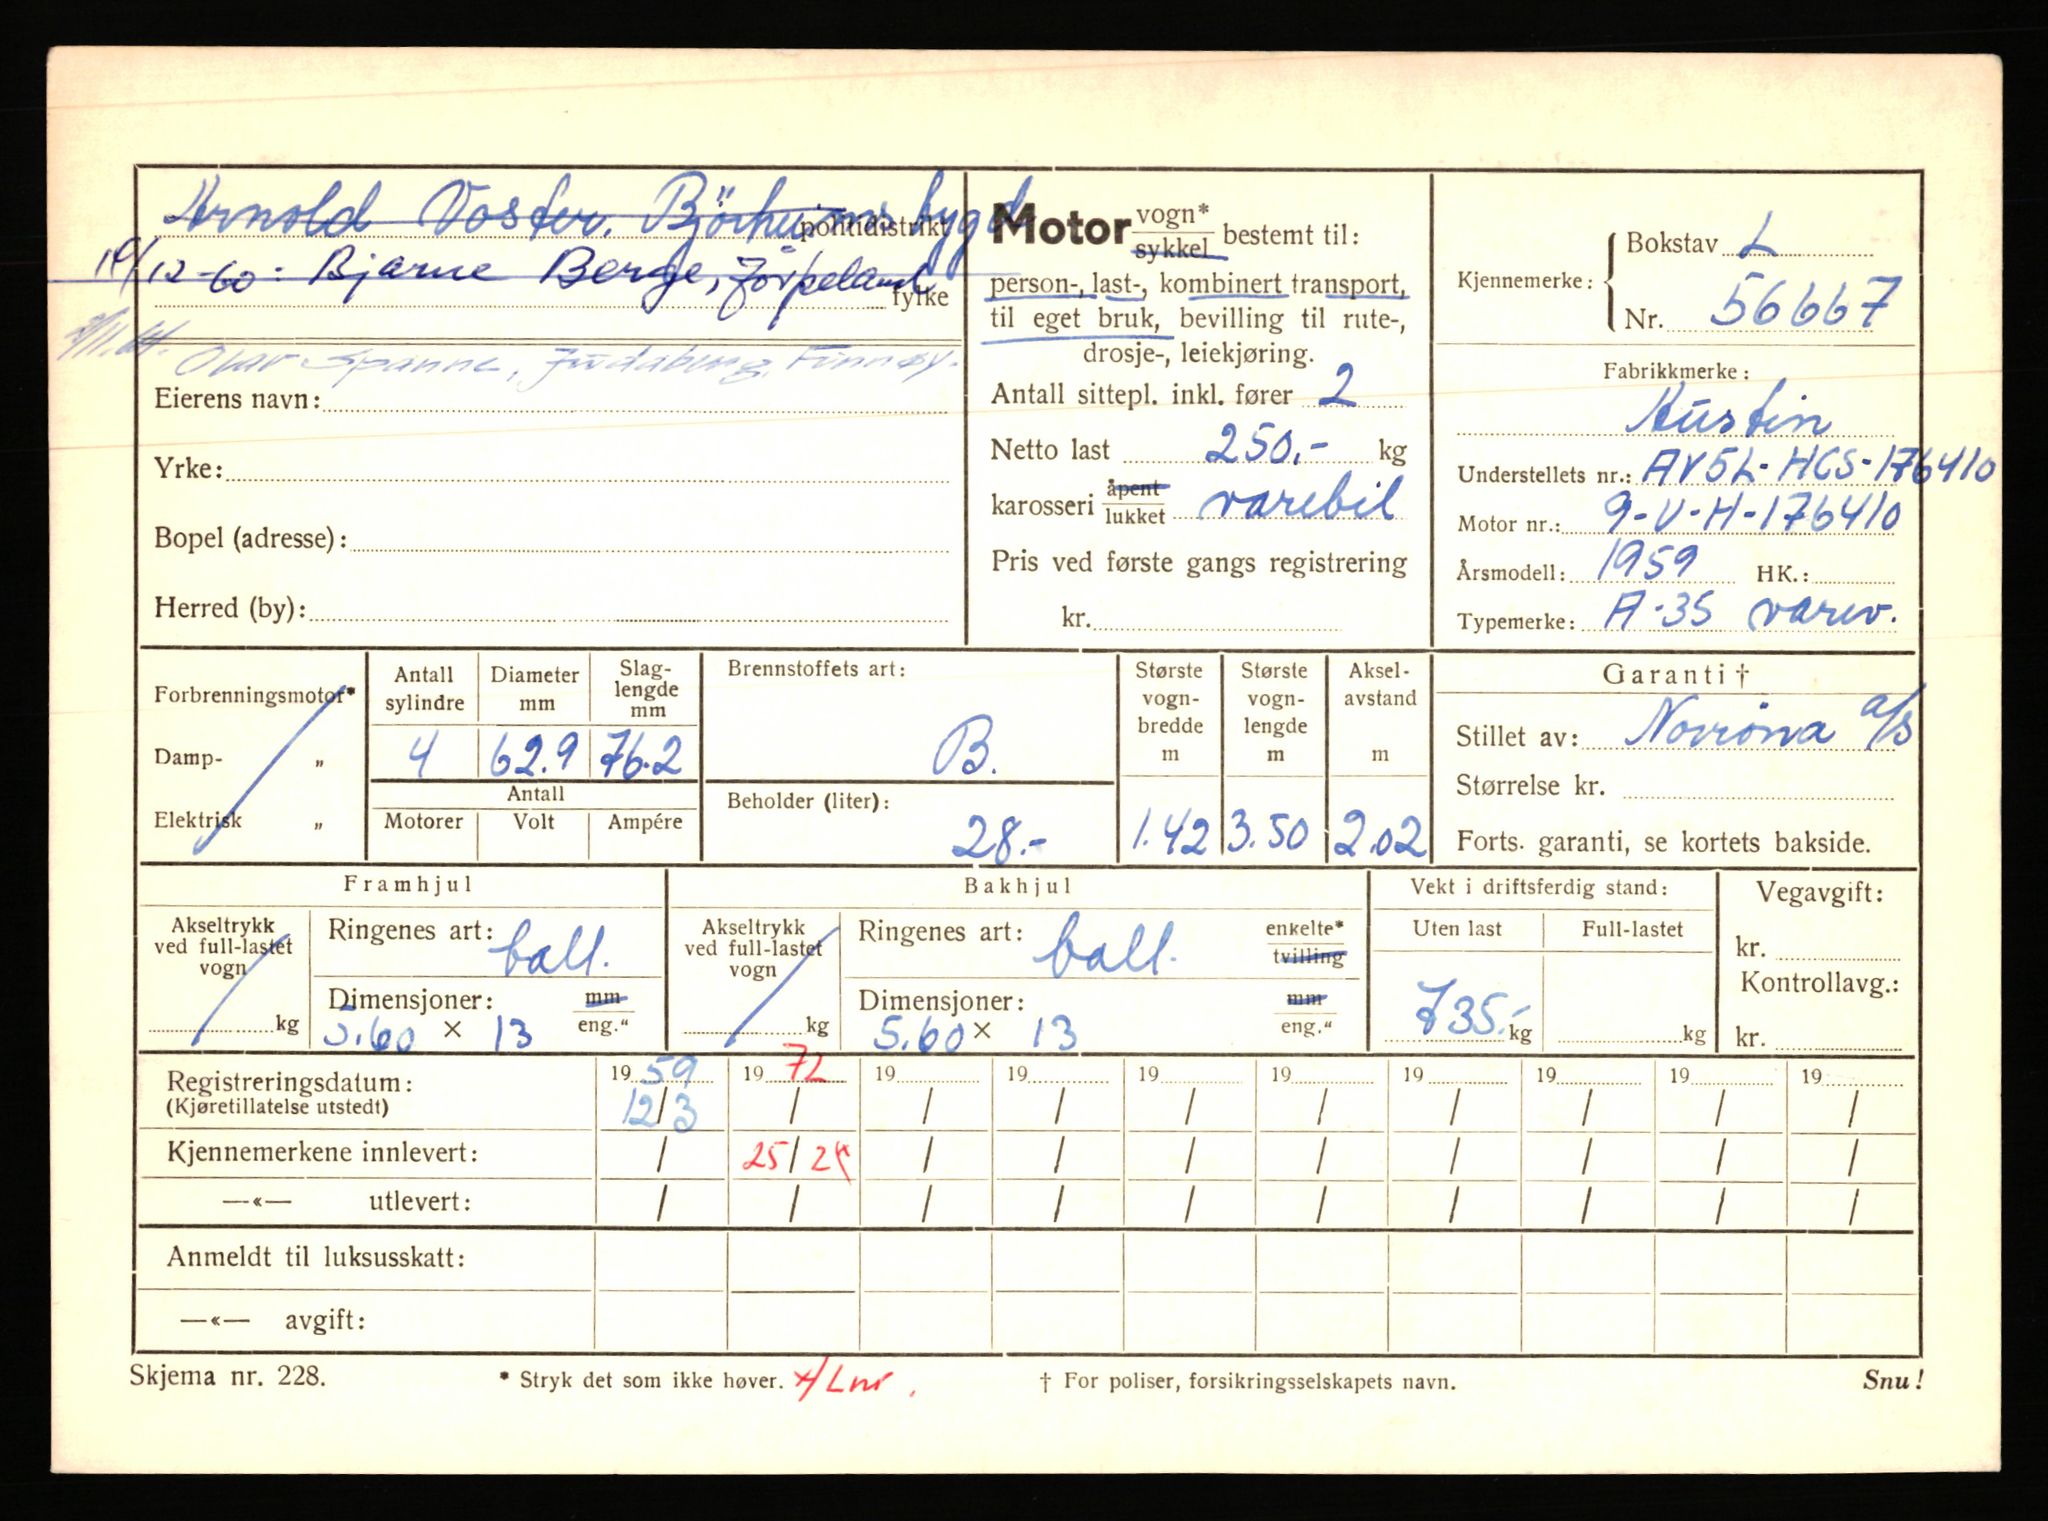 Arnold Voster, Bjørheimsbygd
politidistrikt
12-60: Bjarne Berge, Jørpeland
fylke
Spanne, Judaberg, Finnøy.
Eierens navn:
Yrke:
Bopel (adresse):
Herred (by):
Motor vogn* sykkel bestemt til:
person-, last-, kombinert transport,
til eget bruk, bevilling til rute-,
drosje-, leiekjøring.
Antall sittepl. inkl. fører 2
Netto last 250.- kg
karosseri åpent lukket varebil
Pris ved første gangs registrering
kr.
Kjennemerke: Bokstav L
Nr. 56667
Fabrikkmerke:
Austin
Understellets nr.: AV5L-HCS-176410
Motor nr.: 9-V-H-176410
Årsmodell: 1959 HK.:
Typemerke: A-35 varev.
Forbrenningsmotor*
Damp- „
Elektrisk „
Antall sylindre Diameter mm Slag-lengde mm
4 62.9 76.2
Antall
Motorer Volt Ampére
Brennstoffets art:
B.
Beholder (liter):
28.-
Største vogn-bredde m Største vogn-lengde m Aksel-avstand m
1.42 3.50 2.02
Garanti †
Stillet av: Norrøna a/s
Størrelse kr.
Forts. garanti, se kortets bakside.
Framhjul
Akseltrykk ved full-lastet vogn
kg
Ringenes art: ball.
Dimensjoner: mm
5.60 × 13 eng."
Bakhjul
Akseltrykk ved full-lastet vogn
kg
Ringenes art: ball. enkelte* tvilling
Dimensjoner: mm
5.60 × 13 eng."
Vekt i driftsferdig stand:
Uten last Full-lastet
735.- kg kg
Vegavgift:
kr.
Kontrollavg.:
kr.
Registreringsdatum: 19 59 19 72 19 19 19 19 19 19 19 19
(Kjøretillatelse utstedt) 12/3 / / / / / / / / /
Kjennemerkene innlevert: / 25/2 / / / / / / / /
—«— utlevert: / / / / / / / / / /
Anmeldt til luksusskatt:
—«— avgift:
Skjema nr. 228.
* Stryk det som ikke høver. */Lnr.
† For poliser, forsikringsselskapets navn.
Snu!